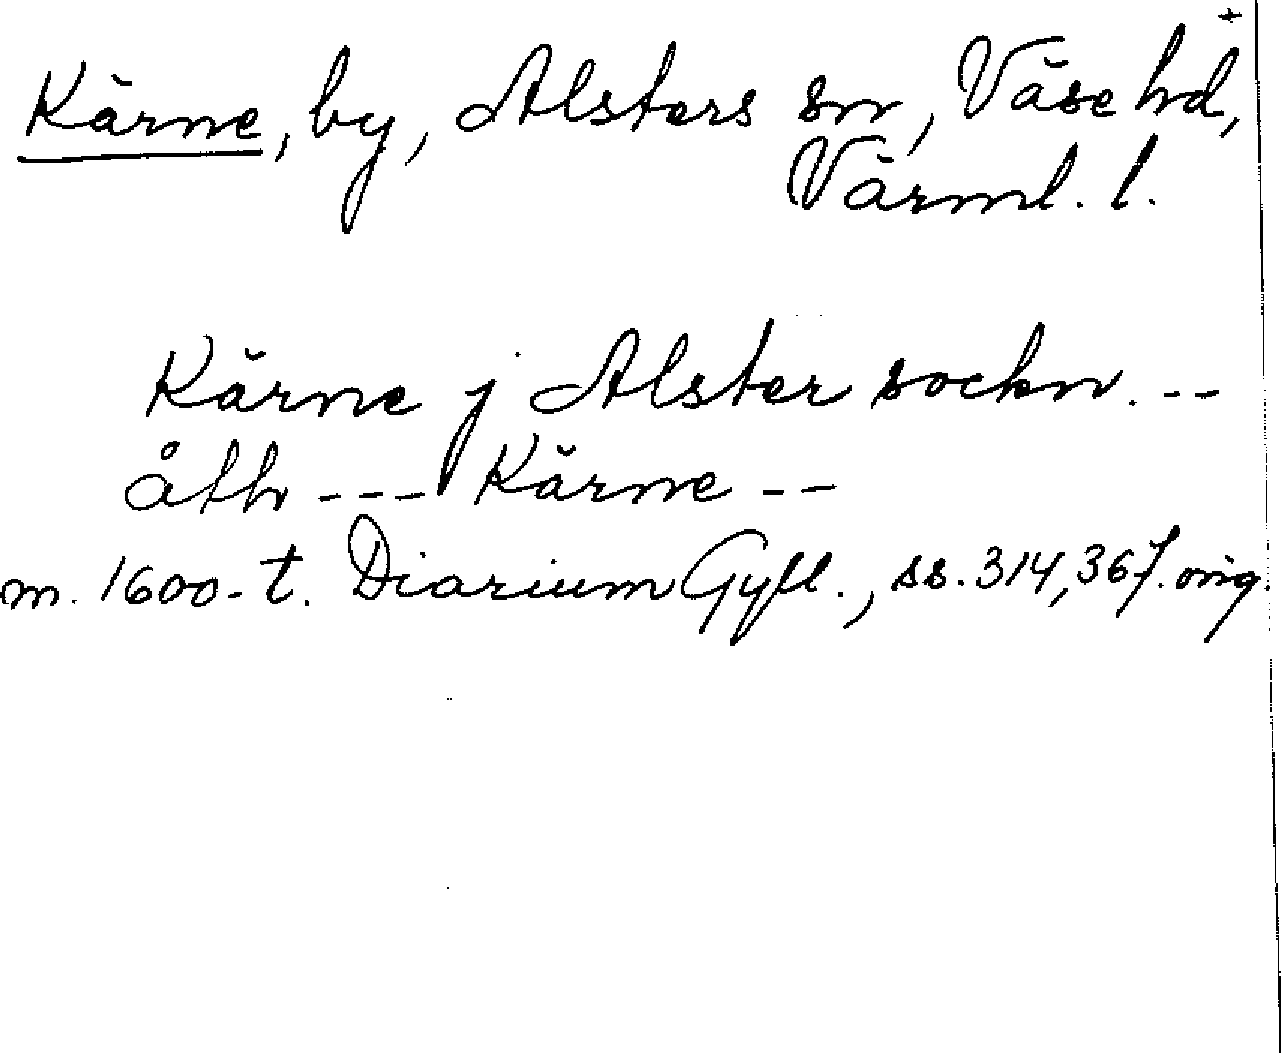 Kärne, by, Alsters sn, Väse hd, +
Värml. l.
Kärne j Alster sockn. --
åth --- Kärne --
m. 1600-t. Diarium Gyll., ss. 314, 367. orig.